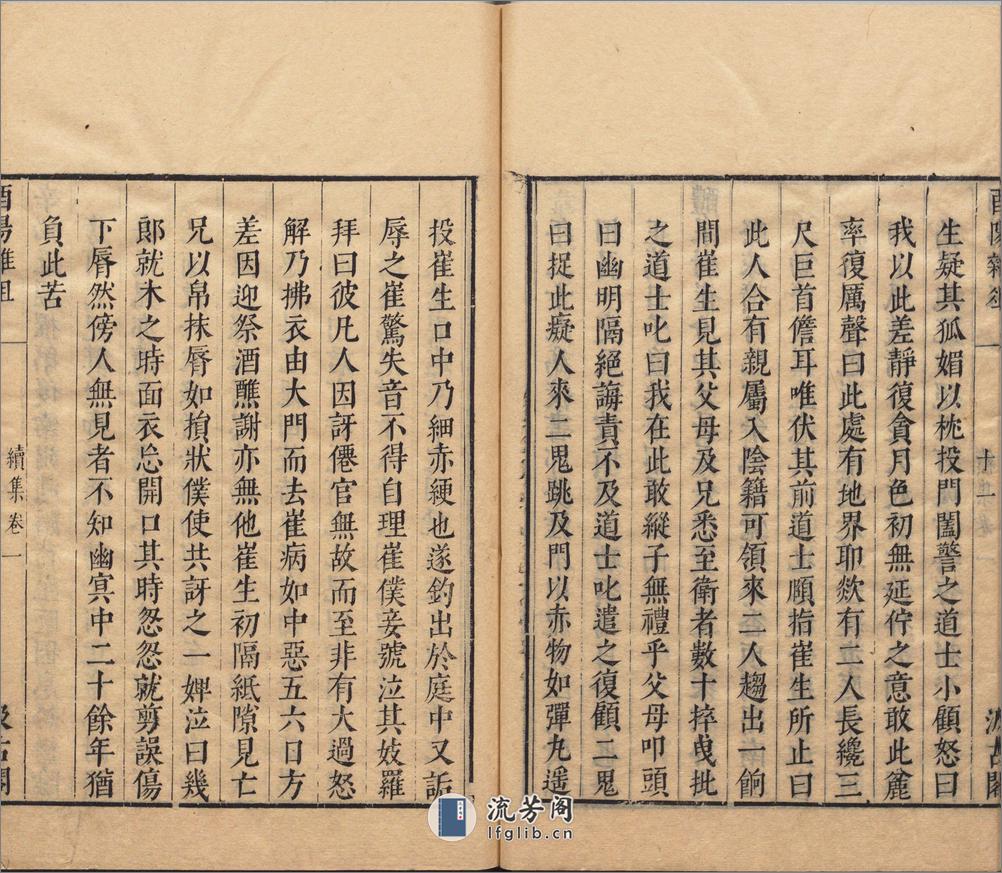 生疑其狐媚以枕投門闔警之道士小顧怒曰
我以此差靜復貪月色初無延佇之意敢此麄
率復厲聲曰此處有地界耶欻有二人長纔三
尺巨首儋耳唯伏其前道士頤指崔生所止曰
此人合有親屬入陰籍可領來二人趨出一餉
間崔生見其父母及兄悉至衛者數十捽曳批
之道士叱曰我在此敢縱子無禮乎父母叩頭
曰幽明隔絕誨責不及道士叱遣之復顧二鬼
曰捉此癡人來二鬼跳及門以赤物如彈丸遥
投崔生口中乃細赤綆也遂釣出於庭中又詬
辱之崔驚失音不得自理崔僕妾號泣其妓羅
拜曰彼凡人因訝僊官無故而至非有大過怒
解乃拂衣由大門而去崔病如中惡五六日方
差因迎祭酒醮謝亦無他崔生初隔紙隙見亡
兄以帛抹脣如損狀僕使共訝之一婢泣曰幾
郎就木之時面衣忘開口其時怱怱就剪誤傷
下脣然傍人無見者不知幽冥中二十餘年猶
負此苦
續集卷一
流芳阁
lfglib.cn